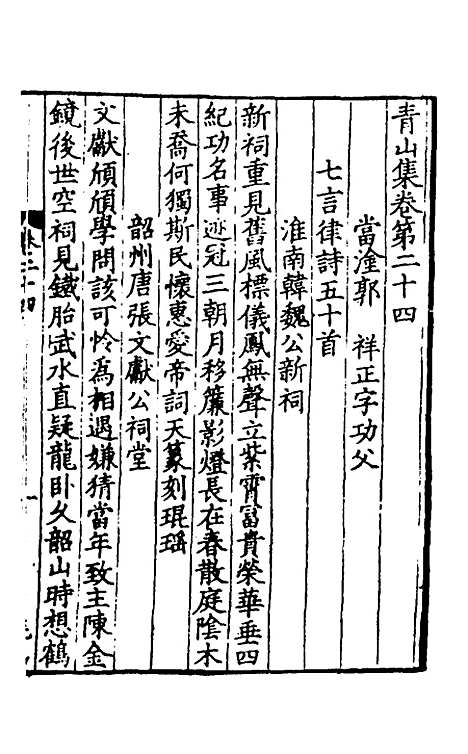 青山集卷第二十四
當塗郭　祥正字功父
七言律詩五十首
淮南韓魏公新祠
新祠重見舊風標儀鳳無聲立紫霄富貴榮華垂四
紀功名事迹冠三朝月移簾影燈長在春散庭陰木
未喬何獨斯民懷惠愛帝詞天篆刻琨瑤
韶州唐張文獻公祠堂
文獻頎頎學問該可怜爲相遇嫌猜當年致主陳金
鏡後世空祠見鐵胎武水直疑龍卧久韶山時想鶴
卷二十四
一